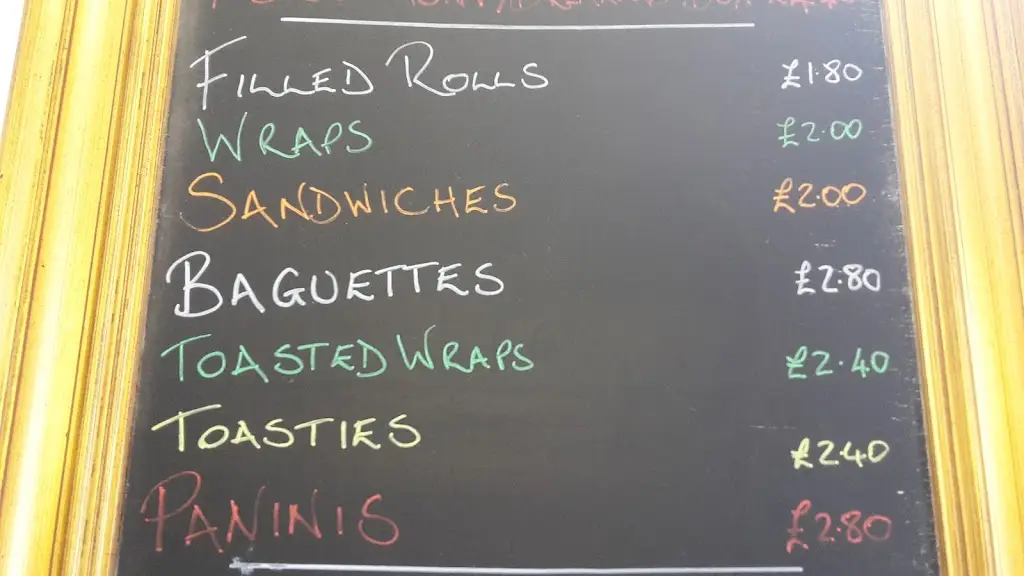 Filled Rolls £1.80
Wraps £2.00
Sandwiches £2.00
Baguettes £2.80
Toasted Wraps £2.40
Toasties £2.40
Paninis £2.80